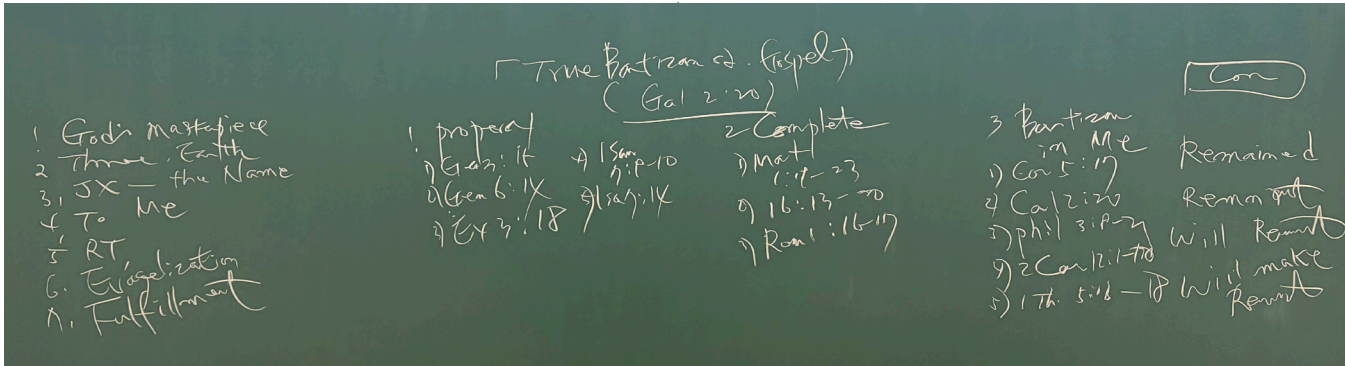 「True Bartizan of. Gospel」
(Gal 2:20)
Con
1 God's masterpiece
2 Throne. Earth
3, JX — the Name
4 To Me
5 RT,
6. Evangelization
7. Fulfillment
1 properat
1) Gen 3:15
2) Gen 6:14
3) Ex 3:18
4) 1 Sam
5) Isa 7:14
2 Complete
1) Mat
1:18-23
2) 16:13-20
3) Rom 1:16-17
3 Bartizan
in Me
1) Cor 5:17
2) Gal 2:20
3) phil 3:
4) 2 Cor 12:
5) 1 Th. 5:16-18
Remained
Remnant
Will Remnt
Will make
Remnt